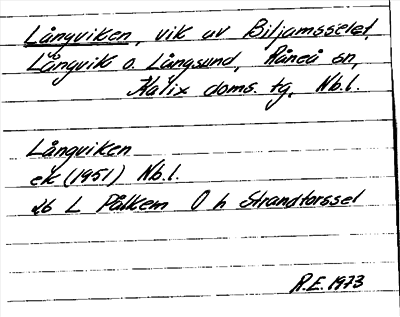 Långviken, vik av Biljamsselet,
Långvik o. Långsund, Råneå sn,
Kalix doms. tg, Nb.l.
Långviken
ek (1951) Nb.l.
26 L Pålkem O h Strandforssel
R.E. 1973